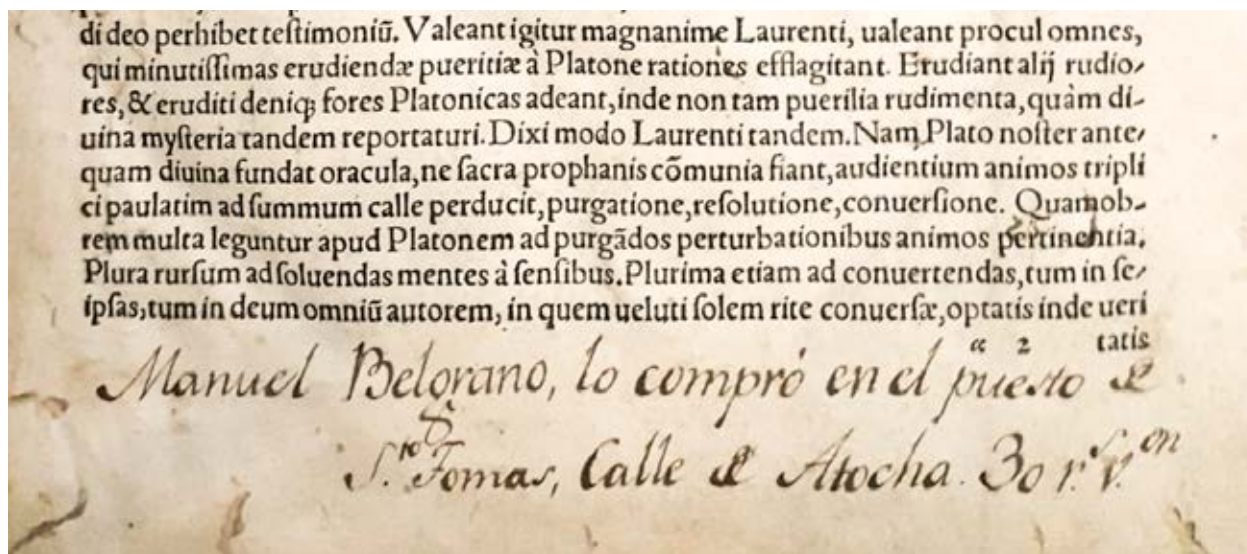 di deo perhibet teſtimoniũ. Valeant igitur magnanime Laurenti, ualeant procul omnes,
qui minutiſſimas erudiendæ pueritiæ à Platone rationes efflagitant. Erudiant alij rudio⸗
res, & eruditi deniqꝫ fores Platonicas adeant, inde non tam puerilia rudimenta, quàm di⸗
uina myſteria tandem reportaturi. Dixi modo Laurenti tandem. Nam Plato noſter ante⸗
quam diuina fundat oracula, ne ſacra prophanis cõmunia fiant, audientium animos tripli
ci paulatim ad ſummum calle perducit, purgatione, reſolutione, conuerſione. Quamob⸗
rem multa leguntur apud Platonem ad purgãdos perturbationibus animos pertinentia.
Plura rurſum ad ſoluendas mentes à ſenſibus. Plurima etiam ad conuertendas, tum in ſe⸗
ipſas, tum in deum omniũ autorem, in quem ueluti ſolem rite conuerſæ, optatis inde ueri
α 2 tatis
Manuel Belgrano, lo compró en el puesto de
S.to Tomas, Calle de Atocha. 30 r.s v.on